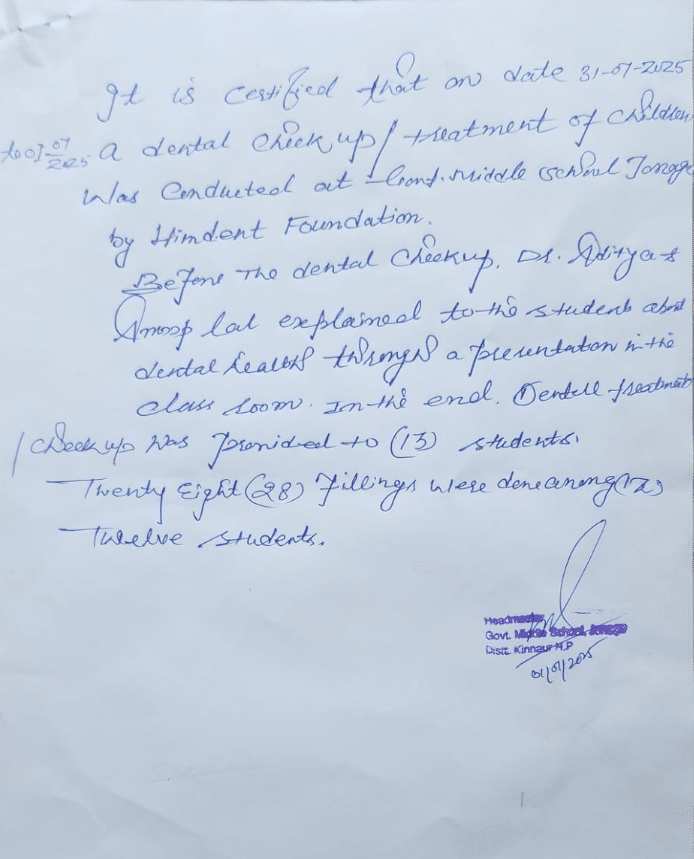 It is certified that on date 31-07-2025
to 01-07-2025 a dental check up/treatment of children
was conducted at Govt. Middle School Jonage
by Himdent Foundation.
Before The dental checkup, Dr. Aditya &
lal explained to the students about
dental health through a presentation in the
class room. In the end. Dentell treatment
/ check up was provided to (13) students.
Twenty Eight (28) fillings were done among (12)
Twelve students.
Headmaster
Govt. Middle School,
Distt. Kinnaur H.P
2025